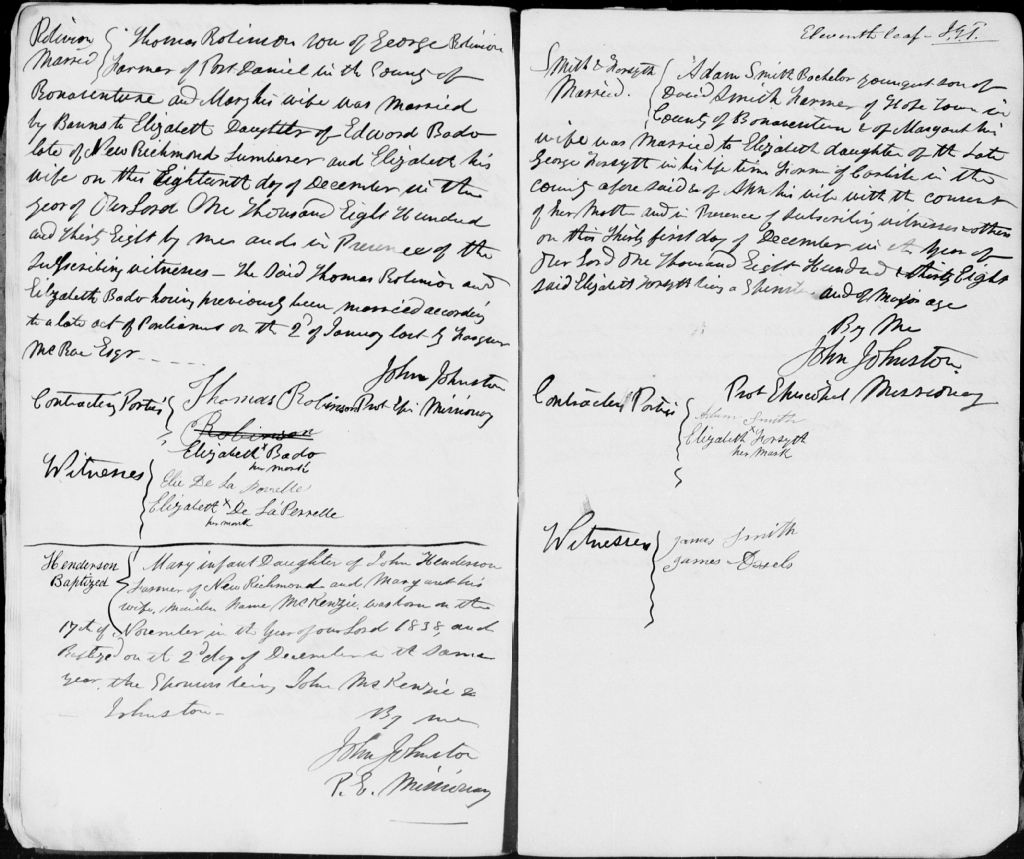 Robinson Married
Thomas Robinson son of George Robinson
Farmer of Port Daniel in the County of
Bonaventure and Mary his wife was Married
by Banns to Elizabeth Daughter of Edward Bado
late of New Richmond Lumberer and Elizabeth his
wife on this Eighteenth day of December in the
year of Our Lord One Thousand Eight Hundred
and Thirty Eight by me and in Presence of the
Subscribing witnesses – the Said Thomas Robinson and
Elizabeth Bado having previously been married according
to a late act of Parliament on the 2d of January last by
McRae Esqr
John Johnston
Prot Epi Missionary
Contracting Parties
Thomas Robinson
Robinson
Elizabeth x Bado
her mark
Witnesses
Elie De La
Elizabeth x De La Perrelle
her mark
Henderson Baptized
Mary infant Daughter of John Henderson
Farmer of New Richmond and Margaret his
wife, maiden Name McKenzie, was born on the
17th of November in the Year of our Lord 1838, and
Baptized on the 2d day of December in the same
year, the Sponsors being John McKenzie &
Johnston –
By me
John Johnston
P. E. Missionary
Eleventh leaf –
Smith & Forsyth Married.
Adam Smith Bachelor youngest son of
David Smith Farmer of Hope Town in
County of Bonaventure & of Margaret his
wife was Married to Elizabeth daughter of the Late
George Forsyth in his life time Farmer of Carlisle in the
County afore said & of Ann his wife with the consent
of her Mother and in Presence of Subscribing witnesses & others
on this Thirty first day of December in the Year of
Our Lord One Thousand Eight Hundred & Thirty Eight
said Elizabeth Forsyth being a Spinster and of Major age
By Me
John Johnston
Prot Episcopal Missionary
Contracting Parties
Adam Smith
Elizabeth x Forsyth
her mark
Witnesses
James Smith
James